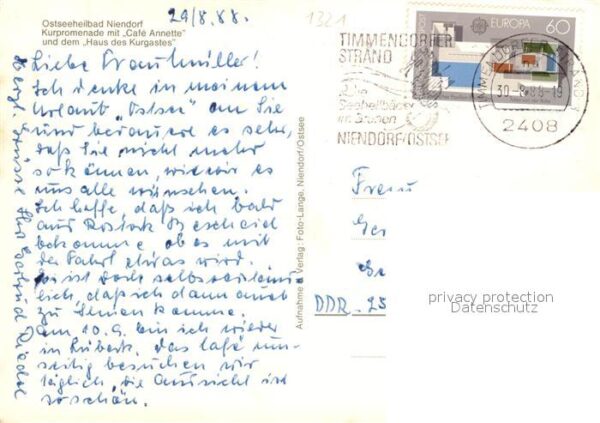 Ostseeheilbad Niendorf
Kurpromenade mit „Café Annette"
und dem „Haus des Kurgastes"
29/8.88.
1321
Liebe Frau Müller!
Ich denke in meinem
Urlaub "Ostsee" an Sie
und bedauere es sehr,
daß Sie nicht mehr
so können, wie wir es
uns alle wünschen.
Ich hoffe, daß ich bald
aus Rostock Bescheid
bekomme ob es mit
der Fahrt etwas wird.
Es ist doch selbstverständ
lich, daß ich dann auch
zu Ihnen komme.
Am 10.9. bin ich wieder
in Lübeck. das Café um-
seitig besuchen wir
täglich, die Aussicht ist
so schön.
Herzl. Grüsse Ihre Gertrud Riedel
Aufnahme & Verlag: Foto-Lange, Niendorf/Ostsee
TIMMENDORFER
STRAND
Seeheilbäder
im Grünen
NIENDORF/OSTSEE
POST
EUROPA 60
TIMMENDORFER STRAND
30-8.88-15
2408
Frau
DDR-25
privacy protection
Datenschutz